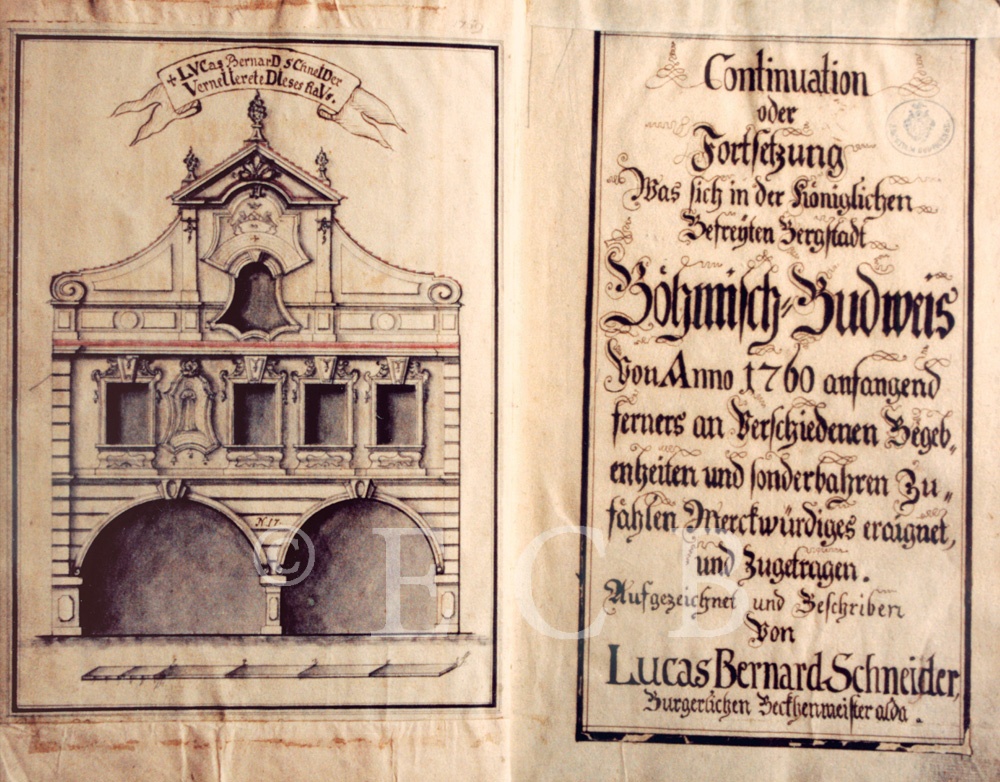 + LVCas BernarD sChneIDer
VerneVerete DIeses HaVs.
N. 17.
Continuation
oder
Fortsetzung
Was sich in der Königlichen
Befreÿten Bergstadt
Böhmisch-Budweis
Von Anno 1760 anfangend
ferners an Verschiedenen Begeb„
enheiten und sonderbahren Zu„
fählen Merckwürdiges eraignet,
und Zugetragen.
Aufgezeichnet und Beschriben
Von
Lucas Bernard Schneider,
Burgerlichen Beckhenmeister alda.
© ECB